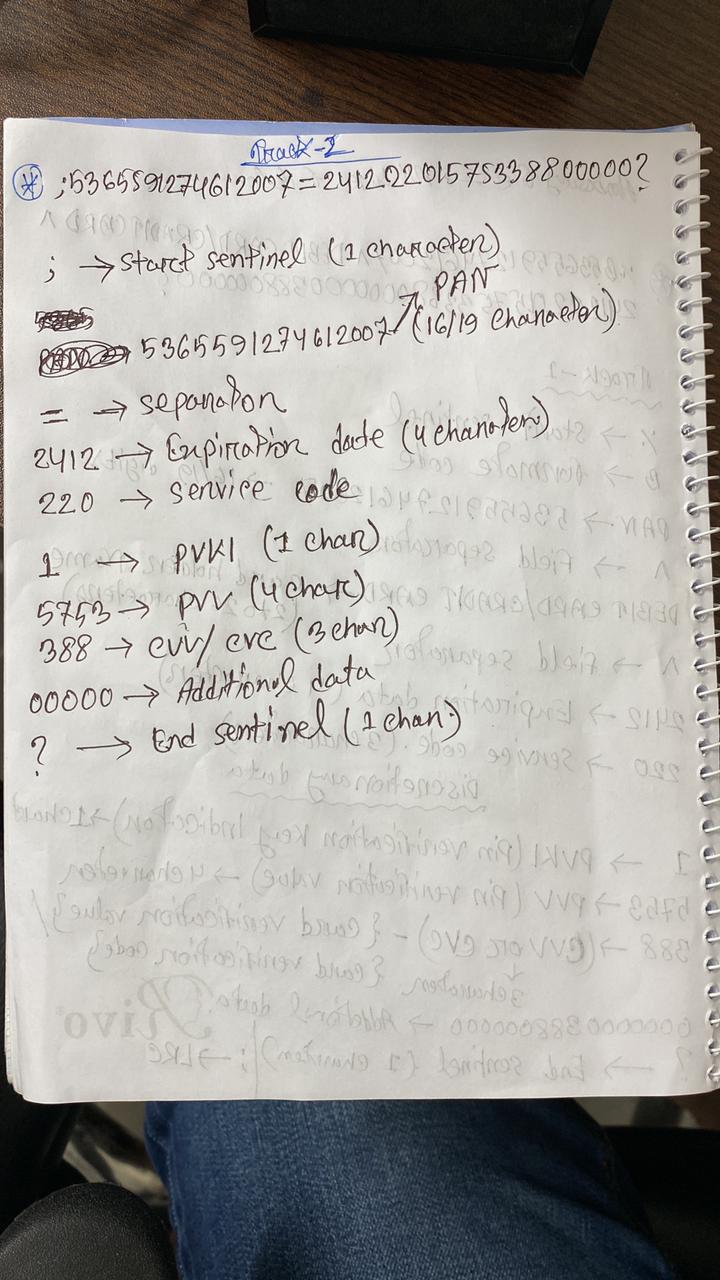 Track-2
* ;5365591274612007=24122201575338800000?
; → Start sentinel (1 character)
PAN
5365591274612007 (16/19 character)
= → separator
2412 → Expiration date (4 charater)
220 → service code
1 → PVKI (1 char)
5753 → PVV (4 char)
388 → cvv/cvc (3 char)
00000 → Additional data
? → End sentinel (1 char)